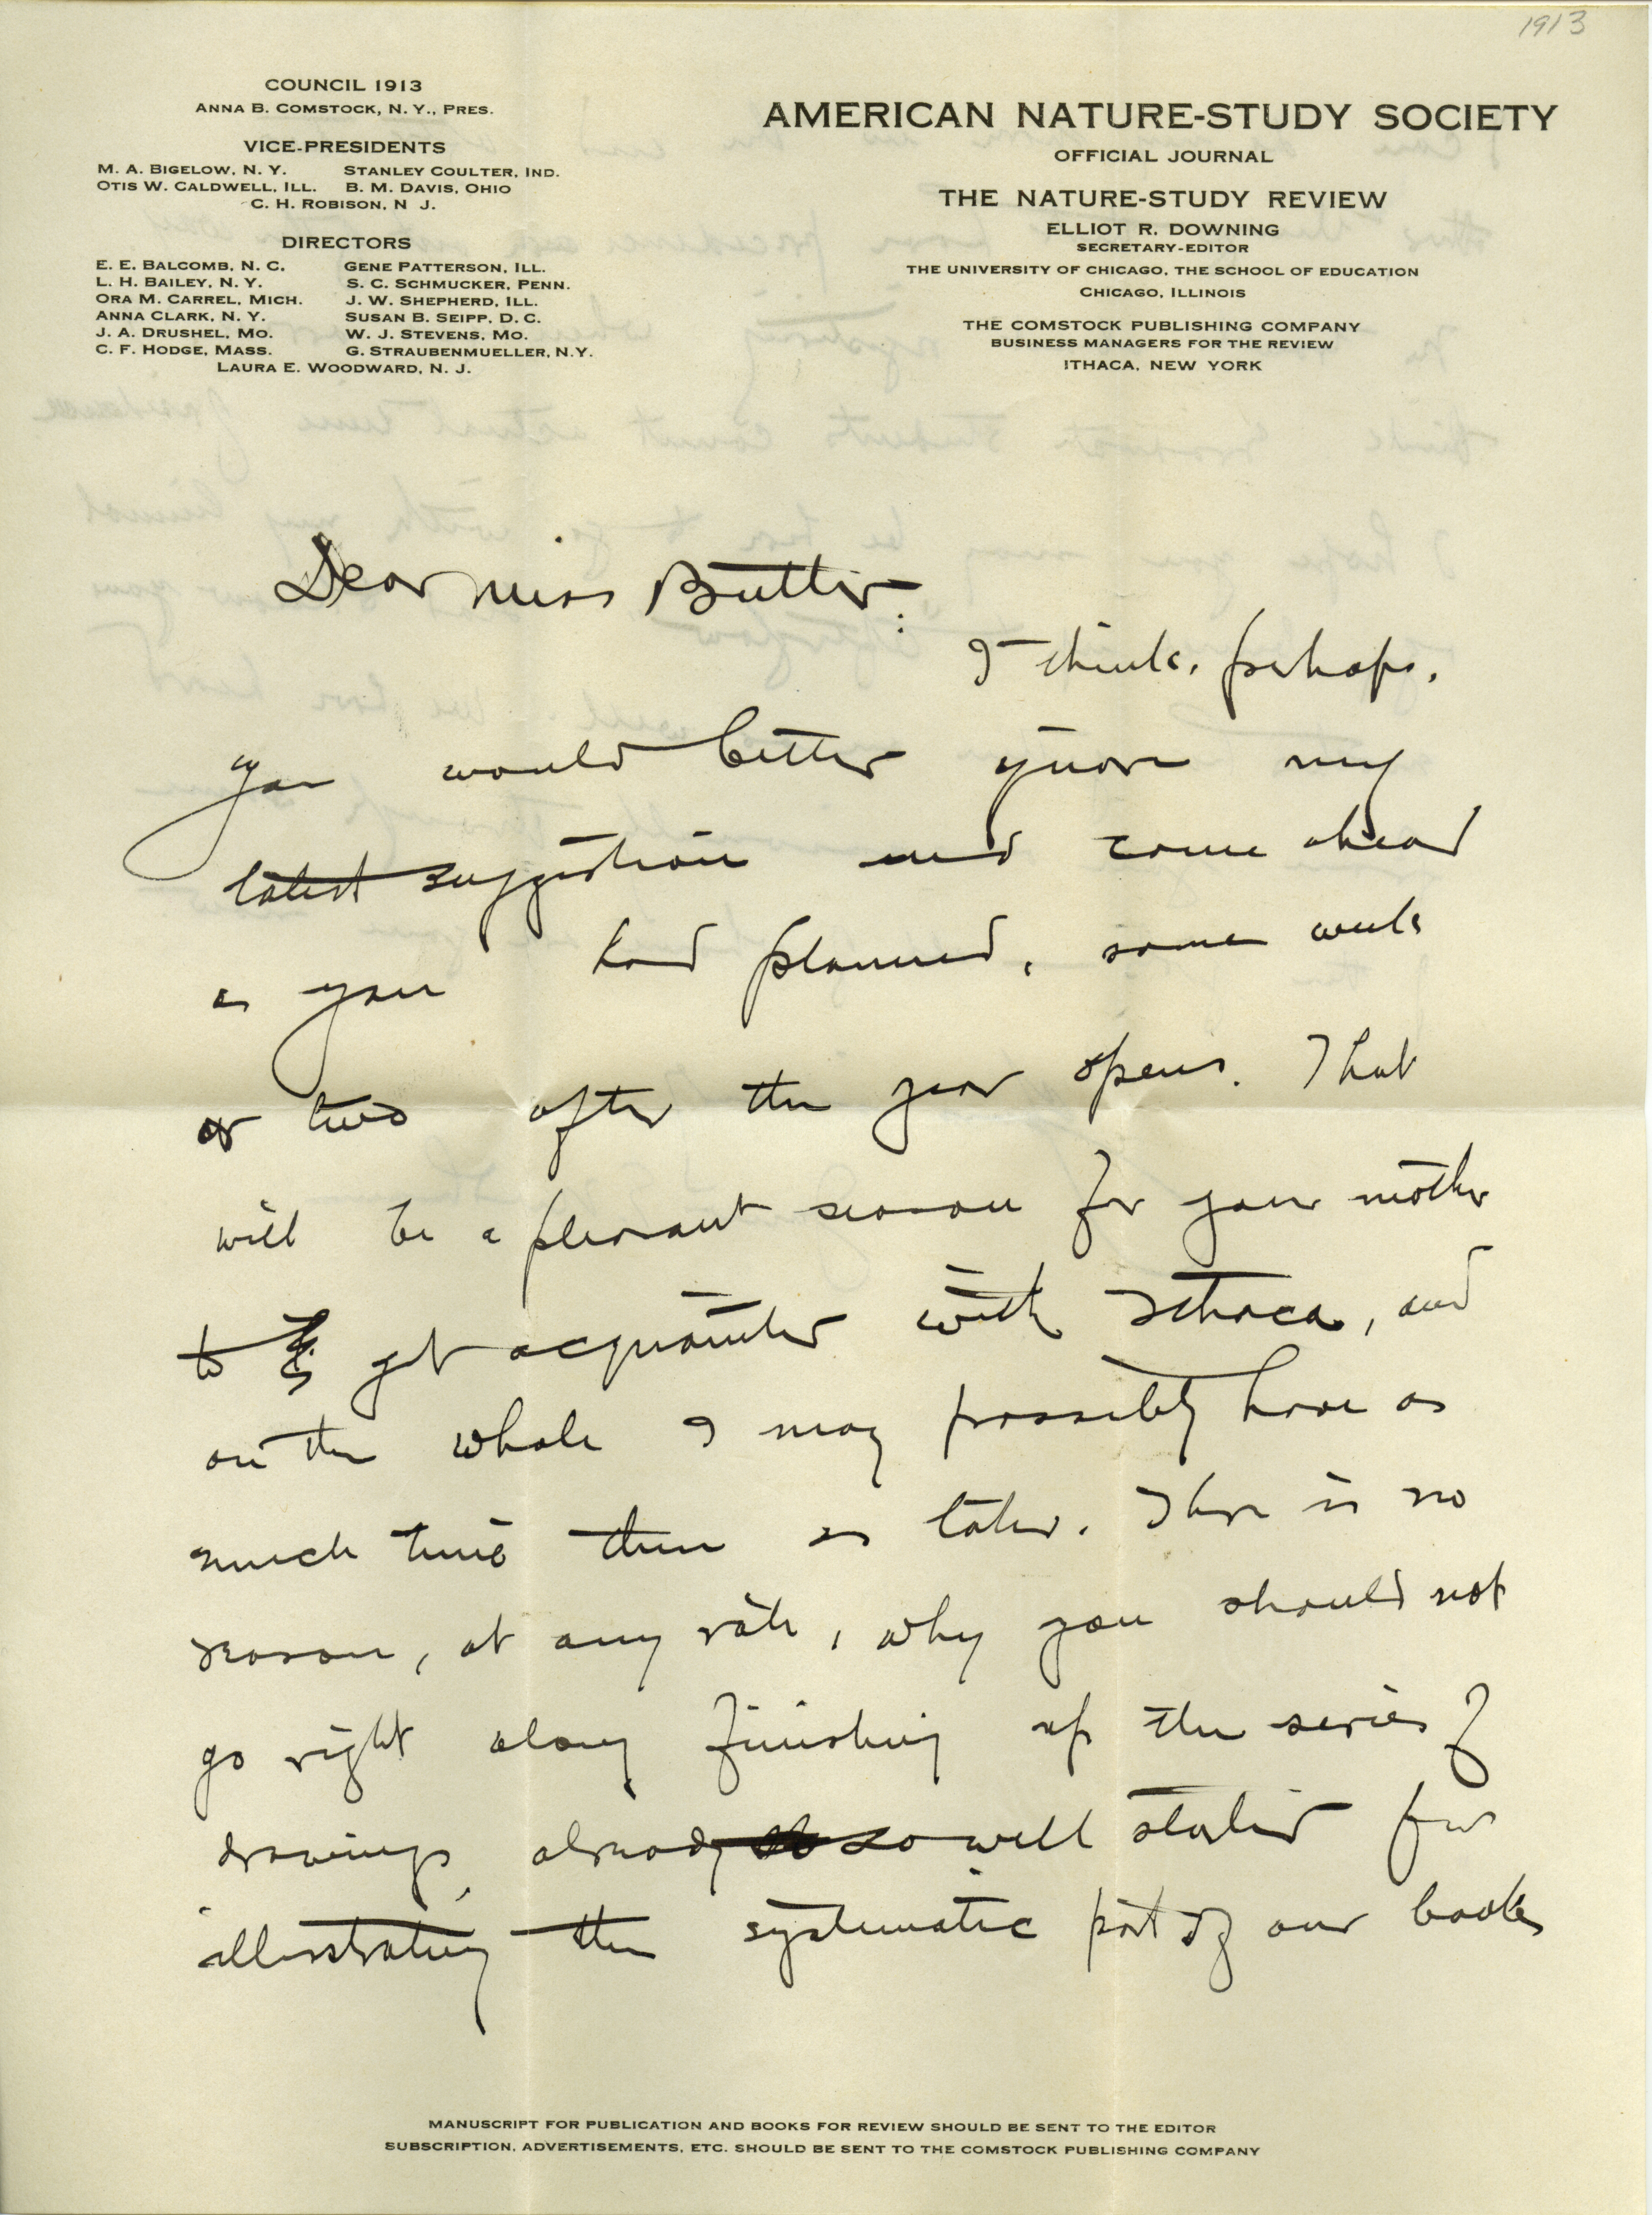 1913
COUNCIL 1913
ANNA B. COMSTOCK, N. Y., PRES.
VICE-PRESIDENTS
M. A. BIGELOW, N. Y. STANLEY COULTER, IND.
OTIS W. CALDWELL, ILL. B. M. DAVIS, OHIO
C. H. ROBISON, N J.
DIRECTORS
E. E. BALCOMB, N. C. GENE PATTERSON, ILL.
L. H. BAILEY, N. Y. S. C. SCHMUCKER, PENN.
ORA M. CARREL, MICH. J. W. SHEPHERD, ILL.
ANNA CLARK, N. Y. SUSAN B. SEIPP, D. C.
J. A. DRUSHEL, MO. W. J. STEVENS, MO.
C. F. HODGE, MASS. G. STRAUBENMUELLER, N.Y.
LAURA E. WOODWARD, N. J.
AMERICAN NATURE-STUDY SOCIETY
OFFICIAL JOURNAL
THE NATURE-STUDY REVIEW
ELLIOT R. DOWNING
SECRETARY-EDITOR
THE UNIVERSITY OF CHICAGO, THE SCHOOL OF EDUCATION
CHICAGO, ILLINOIS
THE COMSTOCK PUBLISHING COMPANY
BUSINESS MANAGERS FOR THE REVIEW
ITHACA, NEW YORK
Dear Miss Butler:
I think, perhaps,
you would better ignore my
latest suggestion and come ahead
as you had planned, some week
or two after the year opens. That
will be a pleasant season for your mother
to get acquainted with Ithaca, and
on the whole I may possibly have as
much time then as later. There is no
reason, at any rate, why you should not
go right along finishing up the series of
drawings, already so well started for
illustrating the systematic part of our book
MANUSCRIPT FOR PUBLICATION AND BOOKS FOR REVIEW SHOULD BE SENT TO THE EDITOR
SUBSCRIPTION, ADVERTISEMENTS, ETC. SHOULD BE SENT TO THE COMSTOCK PUBLISHING COMPANY